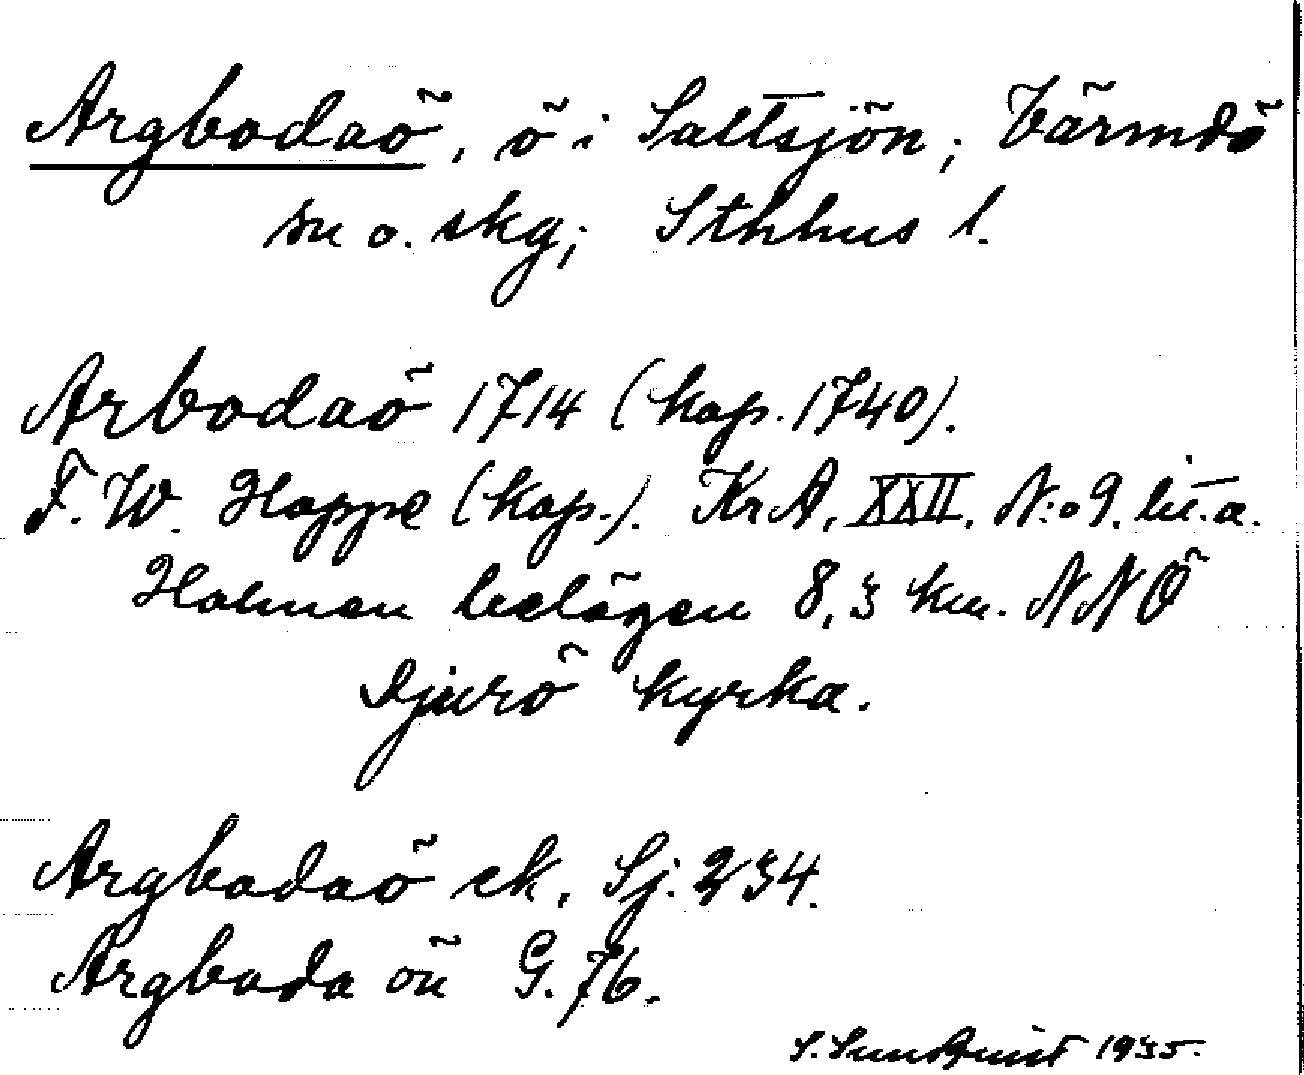 Argbodaö, ö i Saltsjön; Värmdö
sn o. skg; Sthlms l.
Arbodaö 1714 (kop. 1740).
F. W. Hoppe (kop.). KrA, XXII, N:o 9. lit. a.
Holmen belägen 8,3 km. NNÖ
Djurö kyrka.
Argbodaö ek. Sj. 234.
Argboda ön G. 76.
S. Sundkvist 1935.